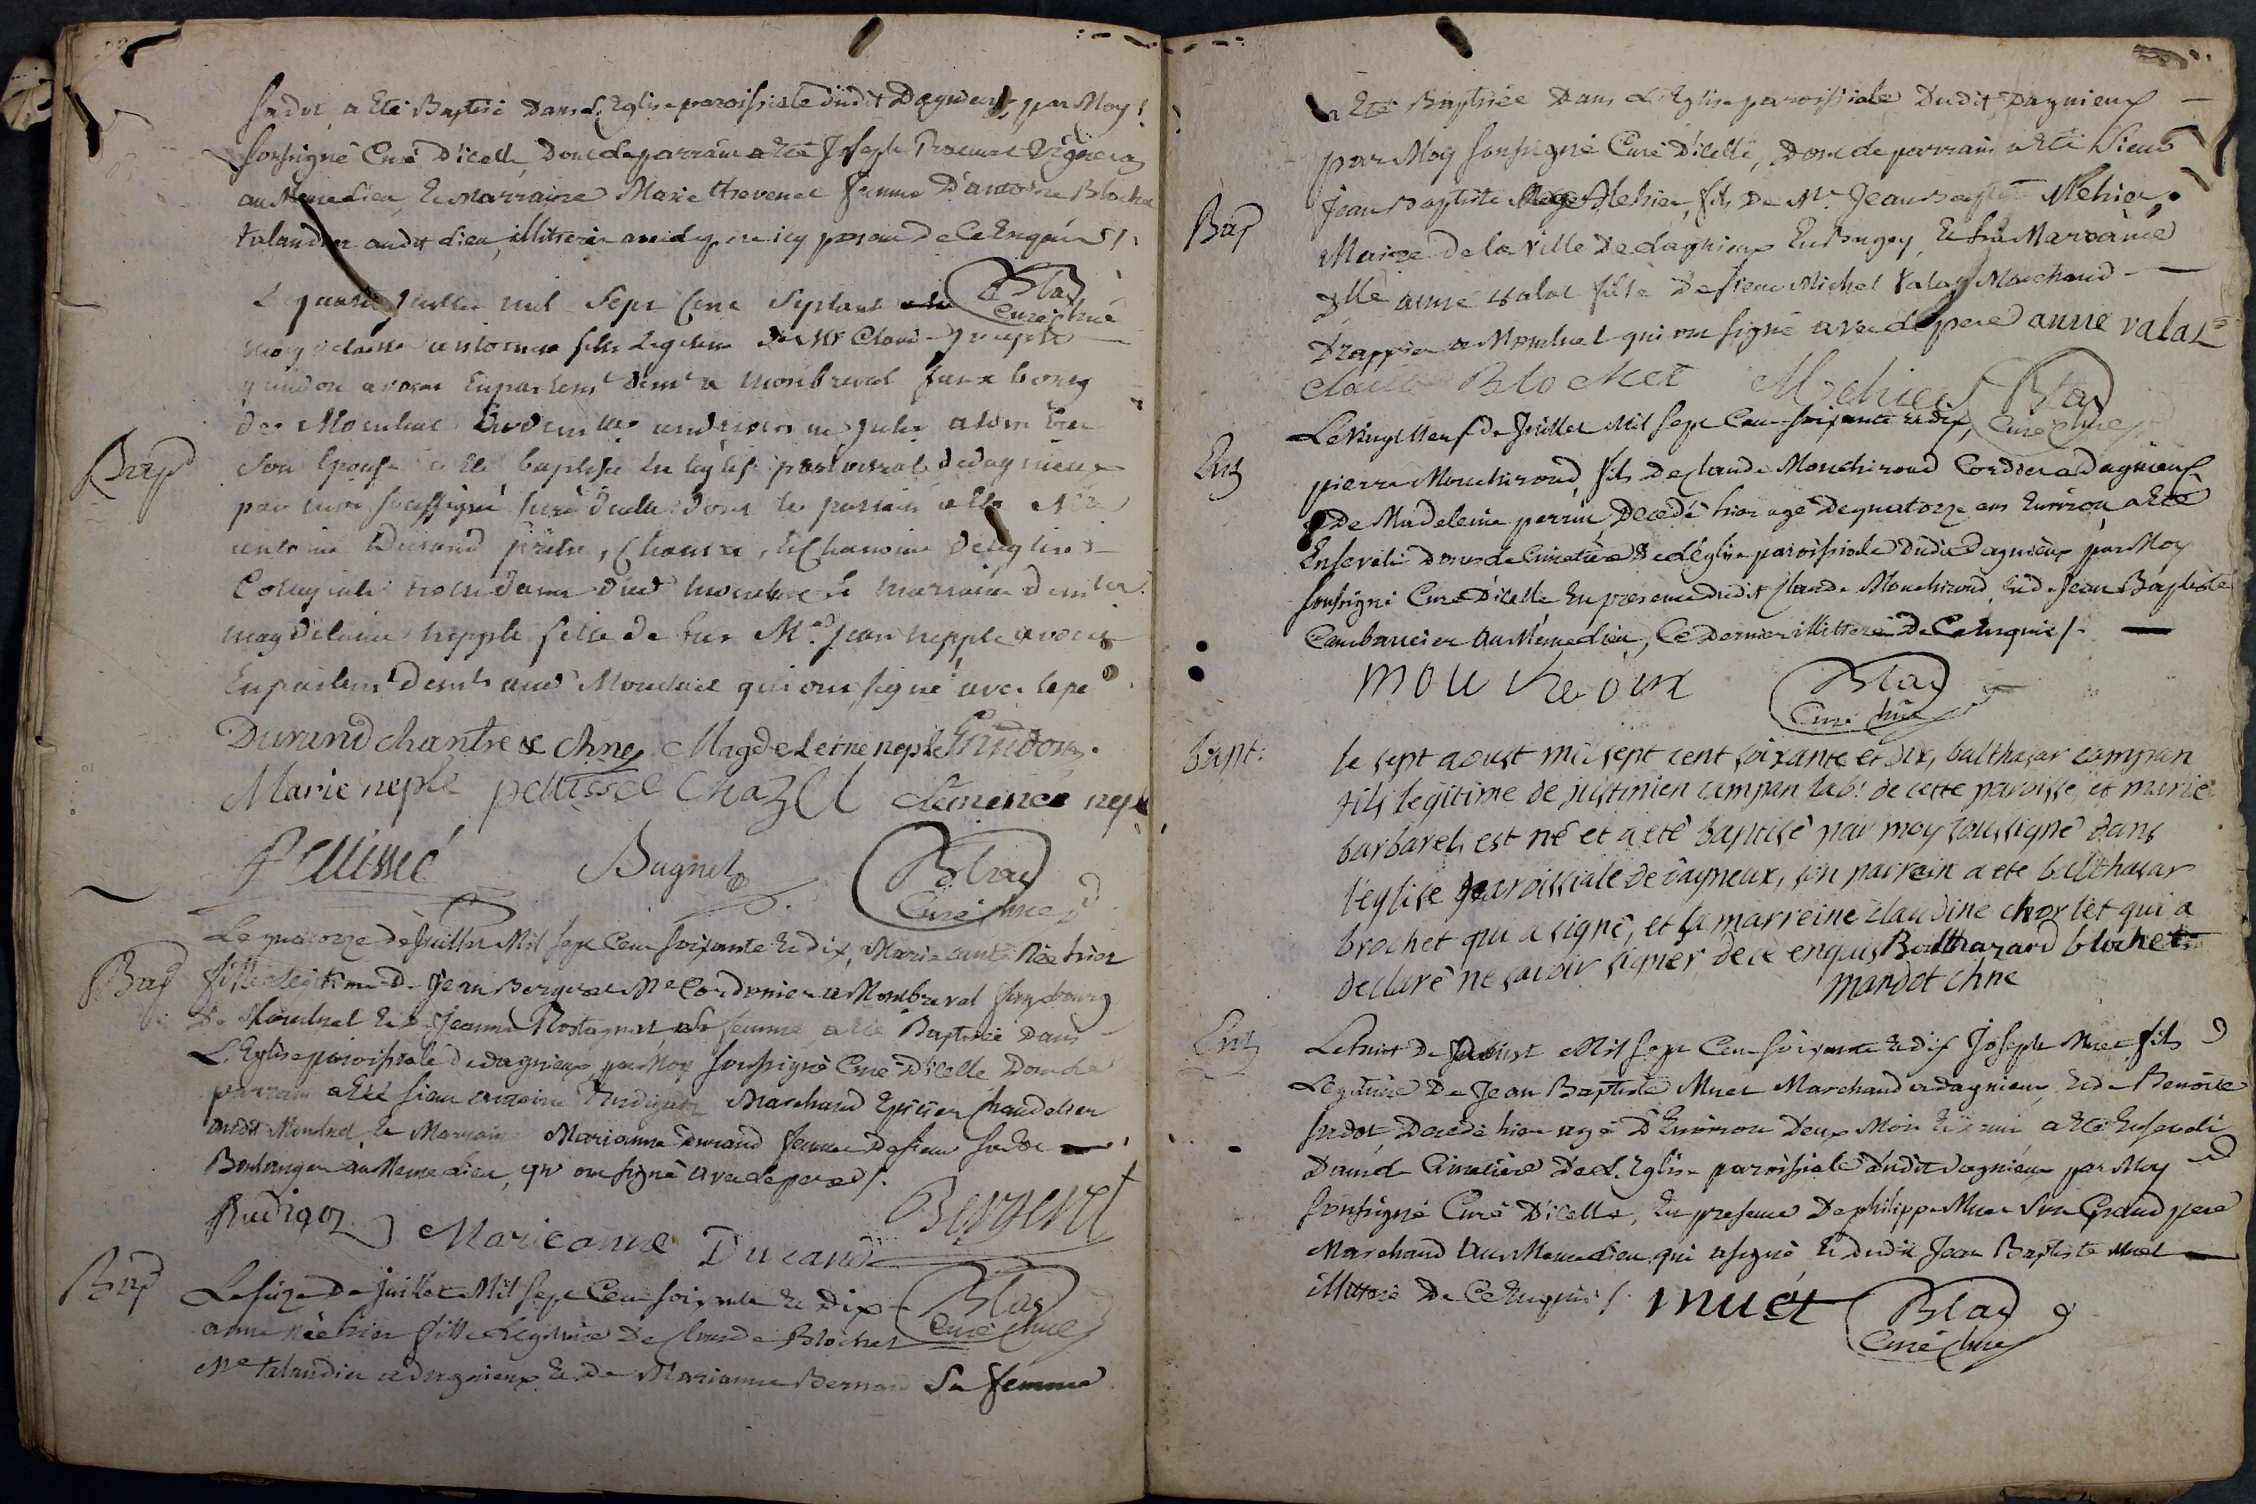 Sudot a Eté Baptisé Dans L'Eglise paroissiale dudit Dagnieux par Moy
soussigné Curé D'icelle, Dont le parrain a été Joseph vigneron
au Meme Lieu, Et Marraine Marie thevenet femme D'antoine Blochet
talandier audit Lieu, illitteré avec le pere icy present De Ce Enquis /.
Blad
Curé chne
Le juillet mil Sept Cent Septante
antoine fils Legitime de Mr Claude joseph
guindon avocat En parlemt demt a Montbreval faux bourg
de Montluel Et de
Son Epouse a Eté baptisé En leglise paroissiale de dagnieux
par moy soussigné Curé d'icelle dont le parrain a Eté Mre
antoine Durand prêtre, Chantre, Et Chanoine de leglise
Collegiale notre dame dud Montluel Et marraine demlle
magdelaine nepple fille de feu Mr Jean nepple avocat
En parlemt demt aud Montluel qui ont signé avec le pe
Durand chantre & chne Magdeleine neple Guindon
Marie neple pellissé Chazel Clémence neple
Pellissé Bugnet Blad
Curé chne
Bap
Le quatorze de Juillet Mil Sept Cent soixante Et dix, Marie anne Née hier
Bap fille Legitime De Jean Bergeret Me Cordonnier a Montbreval fauxbourg
De Montluel Et De Jeanne Rostagnat sa femme a Eté Baptisée Dans
L'Eglise paroissiale de dagnieux, par Moy soussigné Curé D'icelle Dont le
parrain a Eté sieur antoine Rudigoz Marchand Epicier Chandelier
audit Montluel, Et Marraine Marianne Durand femme De sieur Sudot
Boulanger au Meme Lieu, qui ont signé avec le pere /.
Rudigoz Marieanne Durand Bergeret
Bap Le seize De juillet Mil Sept Cent soixante Et Dix Blad
anne née hier fille Legitime De Claude Blochet Curé chne
Me talandier a dagnieux Et De Marianne Bernard Sa femme
a Eté Baptisée Dans L'Eglise paroissiale Dudit Dagnieux
par Moy soussigné Curé D'icelle, Dont le parrain a Eté sieur
Bap Jean Baptiste Mehier, fils De Mr Jean Baptiste Mehier,
Maire de la Ville De Lagnieux En Bugey, Et sa Marraine
Dlle anne valat fille De sieur Michel Valat Marchand
Drappier a Montluel qui ont signé avec le pere anne valat
claude Blochet Mehier Blad
Curé chne
Ent Le vingt Neuf De Juillet Mil Sept Cent soixante Et dix,
pierre Mouchiroud, fils de Claude Mouchiroud Cordier a dagnieux
Et De Madeleine perrin, Decedé hier agé De quatorze ans Environ a Eté
Enseveli dans le Cimetière De L'église paroissiale dudit dagnieux par Moy
soussigné Curé D'icelle En presence dudit Claude Mouchiroud, Et de Jean Baptiste
au Meme Lieu, Ce Dernier illitteré De Ce Enquis /.
Mouchiroux Blad
Curé chne
bapt: le sept aoust mil sept cent soixante et dix, balthasar campan
fils legitime de justinien campan lab: de cette paroisse et marie
barbaret est né et a eté baptisé par moy soussigné dans
l'eglise paroissiale de dagneux, son parrain a ete balthasar
brochet qui a signé, et la marreine claudine chorlet qui a
declaré ne savoir signer de ce enquis Balthazard blochet
mardot chne
Ent Le huit De Aoust Mil Sept Cent soixante Et dix Joseph Muet fils
Legitime De Jean Baptiste Muet Marchand a dagnieux, Et de Benoite
Sudot Decedé hier agé D'Environ Deux Mois Et demi a Eté Enseveli
Dans le Cimetière De L'Eglise paroissiale dudit dagnieux par Moy
soussigné Curé D'icelle, En presence De philippe Muet Son Grand pere
Marchand au Meme Lieu qui a signé Et dudit Jean Baptiste Muet
illitteré De Ce Enquis /. muet Blad
Curé chne